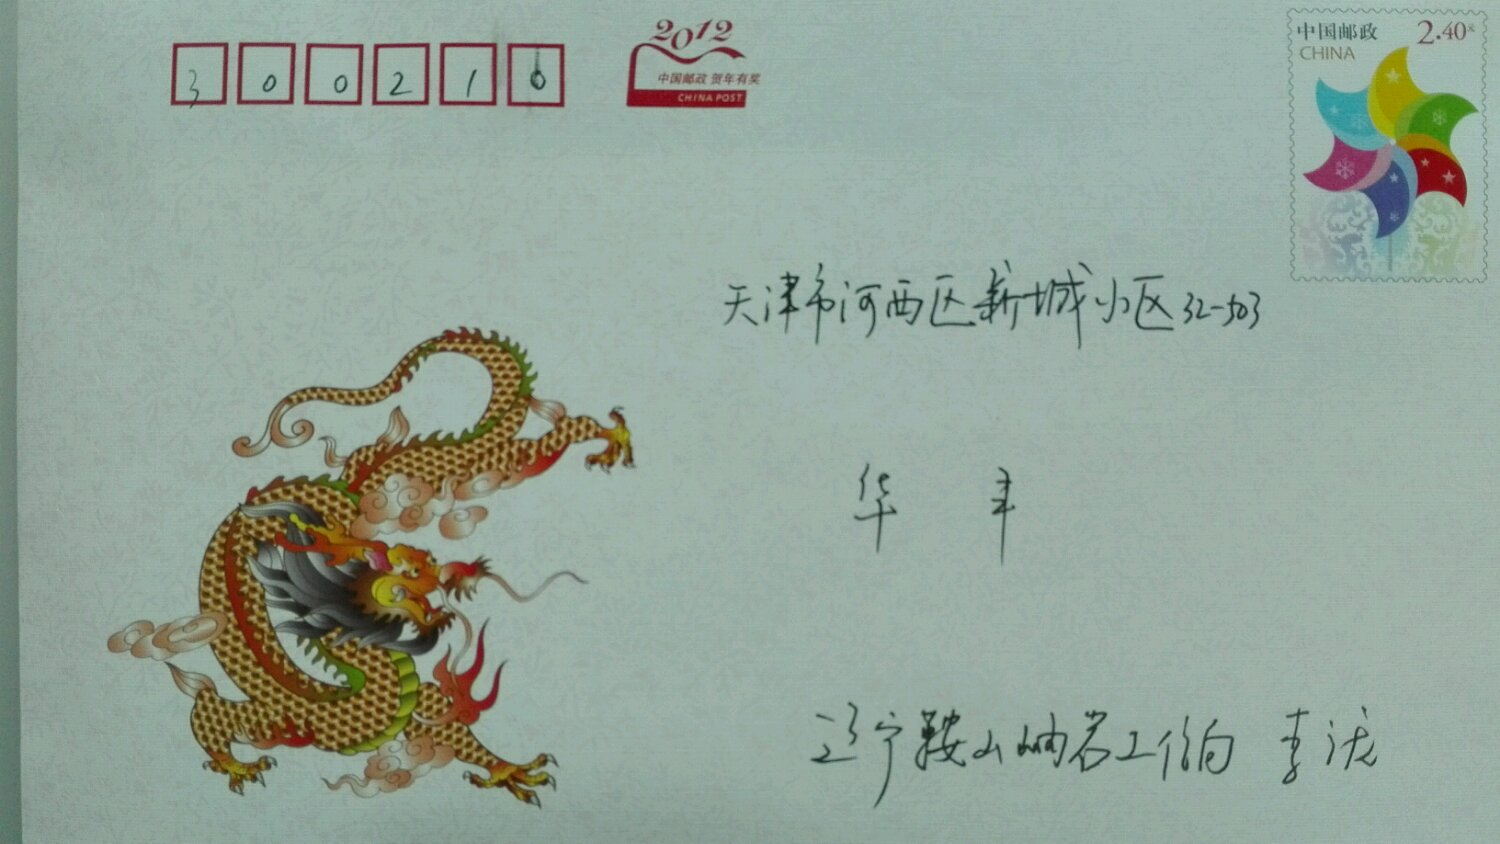 300210
2012
中国邮政 贺年有奖
CHINA POST
中国邮政 2.40元
CHINA
天津市河西区新城小区32-503
华 丰
辽宁鞍山岫岩工作向 李